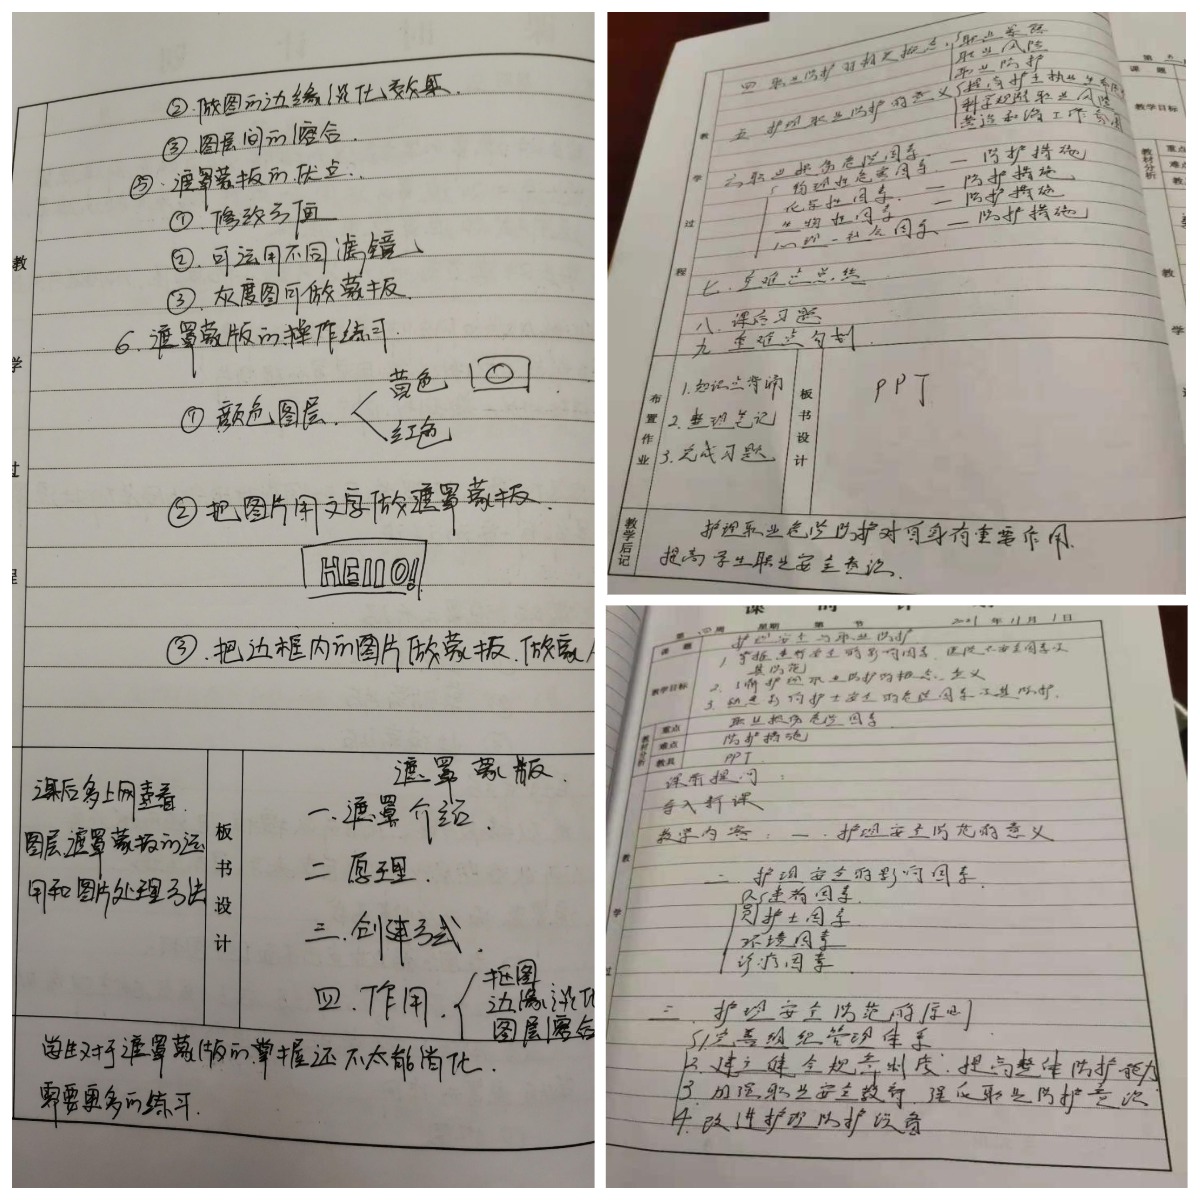 ②.做图的边缘淡化效果.
③图层间的溶合.
⑤.遮罩蒙板的优点.
①.修改方便
②.可运用不同滤镜
③.灰度图可做蒙板.
6.遮罩蒙版的操作练习.
①颜色图层. 黄色
红色
②把图片用文字做遮罩蒙板.
HEllO!
③.把边框内的图片做蒙板.做离
教
学
过
程
课后多上网查看.
图层遮罩蒙板的运
用和图片处理方法
板书设计
遮罩蒙版.
一.遮罩介绍.
二.原理.
三.创建方式.
四.作用. 抠图
边缘淡化
图层溶合
学生对于遮罩蒙版的掌握还不太能消化.
需要更多的练习.
四 职业防护的相关概念 职业暴露
职业风险
职业防护
五 护理职业防护的意义
科学规避职业风险
营造和谐工作氛围
六 职业损伤危险因素
物理性危害因素 — 防护措施
化学性因素. — 防护措施
生物性因素 — 防护措施
心理-社会因素 — 防护措施
七.重难点总结
八.课后习题
九 重难点勾划.
教
学
过
程
布置作业
1.知识点背诵
2.整理笔记
3.完成习题
板书设计
PPT
教学后记
护理职业危险防护对自身有重要作用.
提高学生职业安全意识.
第
课题
教学目标
教材分析
重点
难点
教
学
课 时 计 划
第 周 星期 第 节 2021 年 11 月 1 日
课题 护理安全与职业防护
教学目标
1.掌握患者安全的影响因素.医院不安全因素及
其防范
2.了解护理职业防护的概念、意义
3.熟悉影响护士安全的危险因素及其防护.
教材分析
重点 职业损伤危险因素.
难点 防护措施
教具 PPT
课前提问:
导入新课
教学内容:一.护理安全防范的意义
二.护理安全的影响因素.
患者因素.
护士因素
环境因素
诊疗因素
三 护理安全防范的原则
1.完善组织管理体系
2.建立健全规章制度.提高整体防护能力
3.加强职业安全教育.强化职业防护意识
4.改进护理防护设备
教
学
过